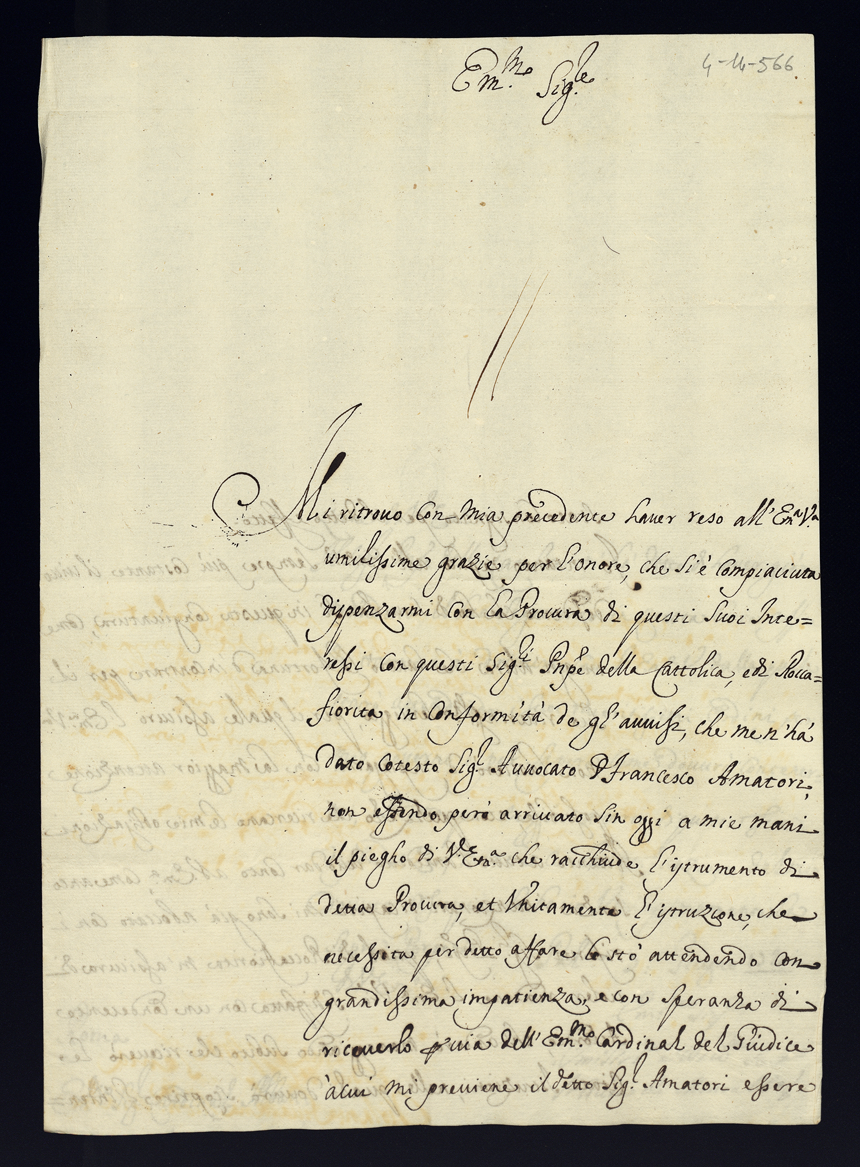 4-14-566
Em.mo Sig.re
Mi ritrovo con mia precedente haver reso all' Em.a V.a
umilissime grazie per l'onore, che si è compiaciuta
dispenzarmi con la Procura di questi suoi Inte=
ressi con questi Sig.ri Pnpe della Cattolica, e di Rocca=
fiorita in conformità de gl' avvisi, che me n'hà
dato cotesto Sig.r Avvocato D Francesco Amatori,
non essendo però arrivato sin oggi a mie mani
il piegho di V.a Em.a che racchiude l'istrumento di
detta Procura, et unitamente l'istruzione, che
necessita per detto affare lo stò attendendo con
grandissima impatienza, e con speranza di
riceverlo p via dell' Em.mo Cardinal del Giudice
à cui mi previene il detto Sig.r Amatori essere